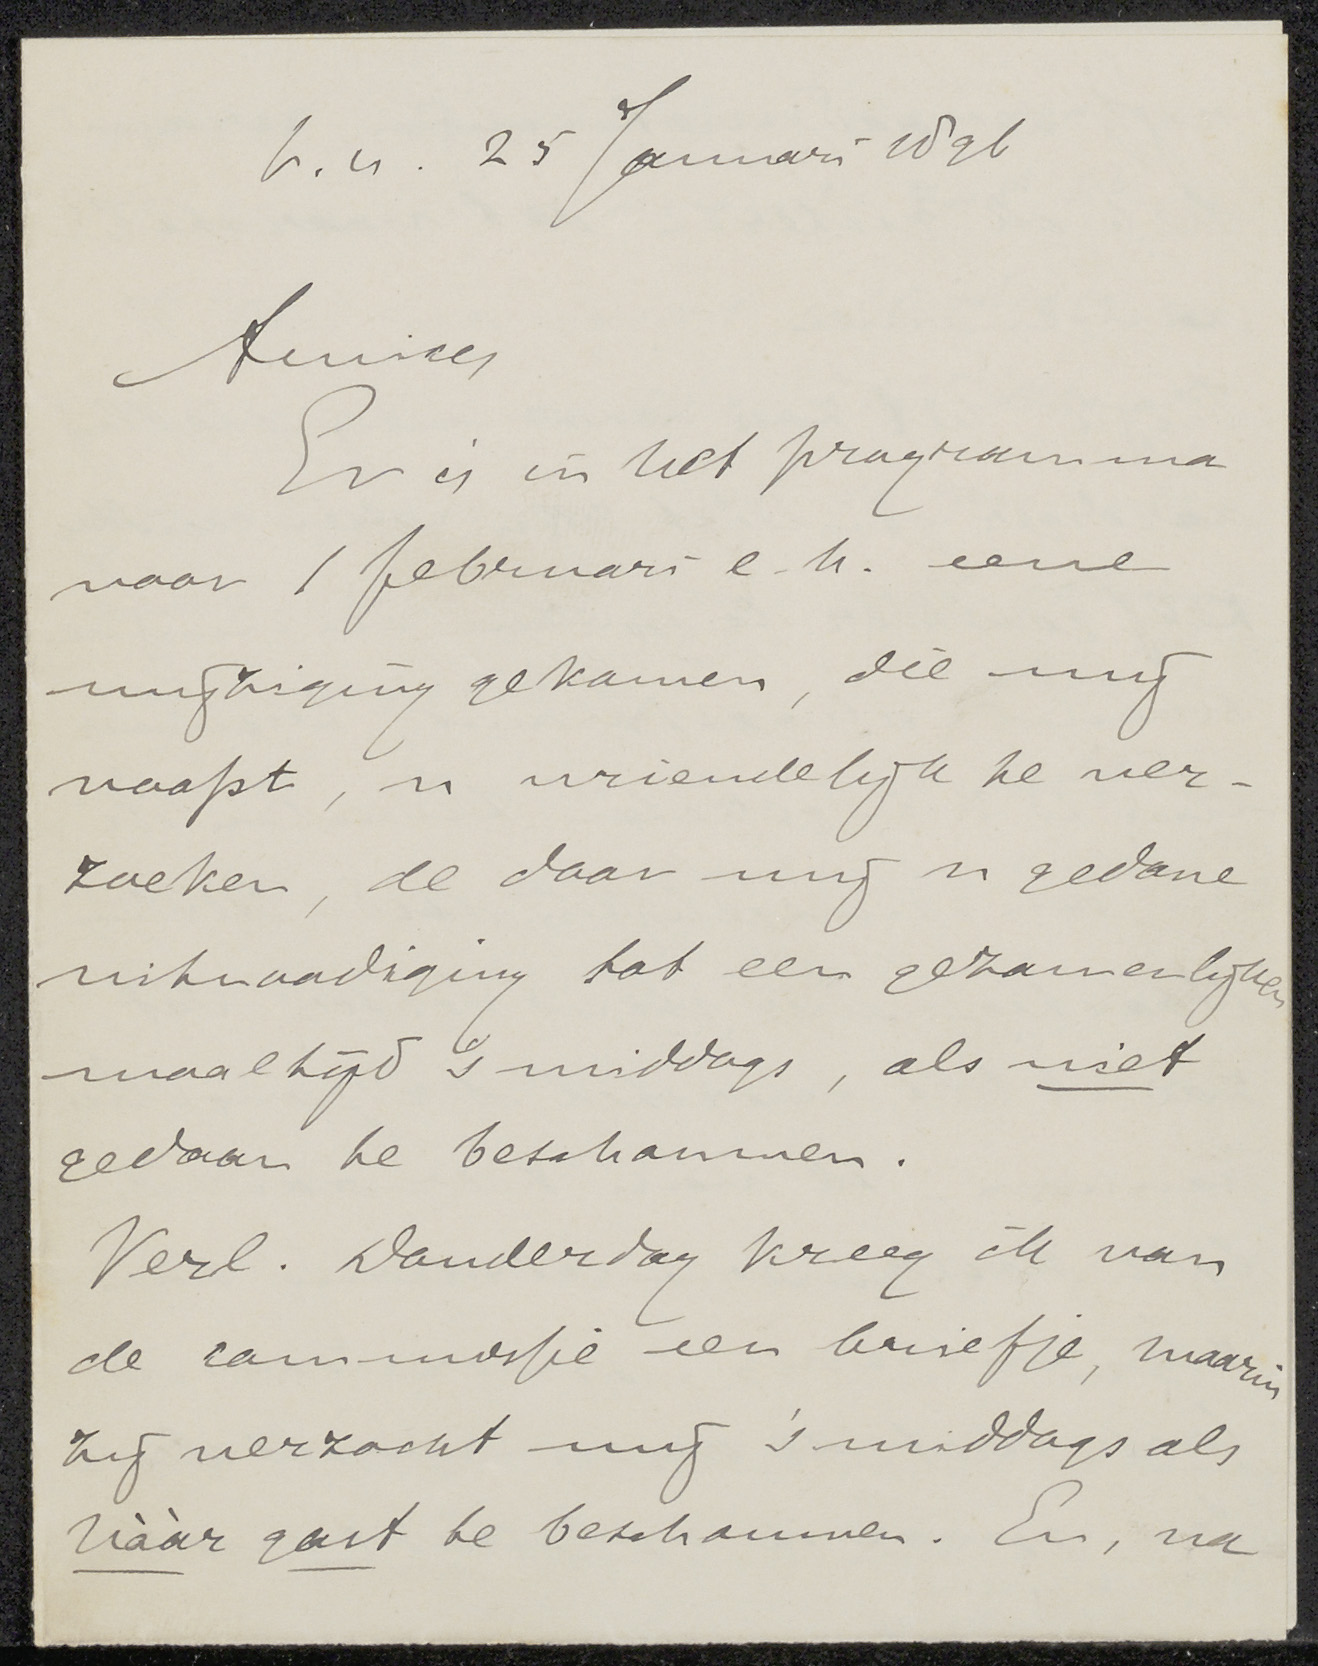 t.u. 25 Januari 1896
Amice,
Er is in het programma
voor 1 februari e.k. eene
wijziging gekomen, die mij
noopt, u vriendelijk te ver-
zoeken, de door mij u gedane
uitnoodiging tot een gezamenlijken
maaltijd 's middags, als niet
gedaan te beschouwen.
Verl. Donderdag kreeg ik van
de commissie een briefje, waarin
zij verzocht mij 's middags als
hààr gast te beschouwen. En, na